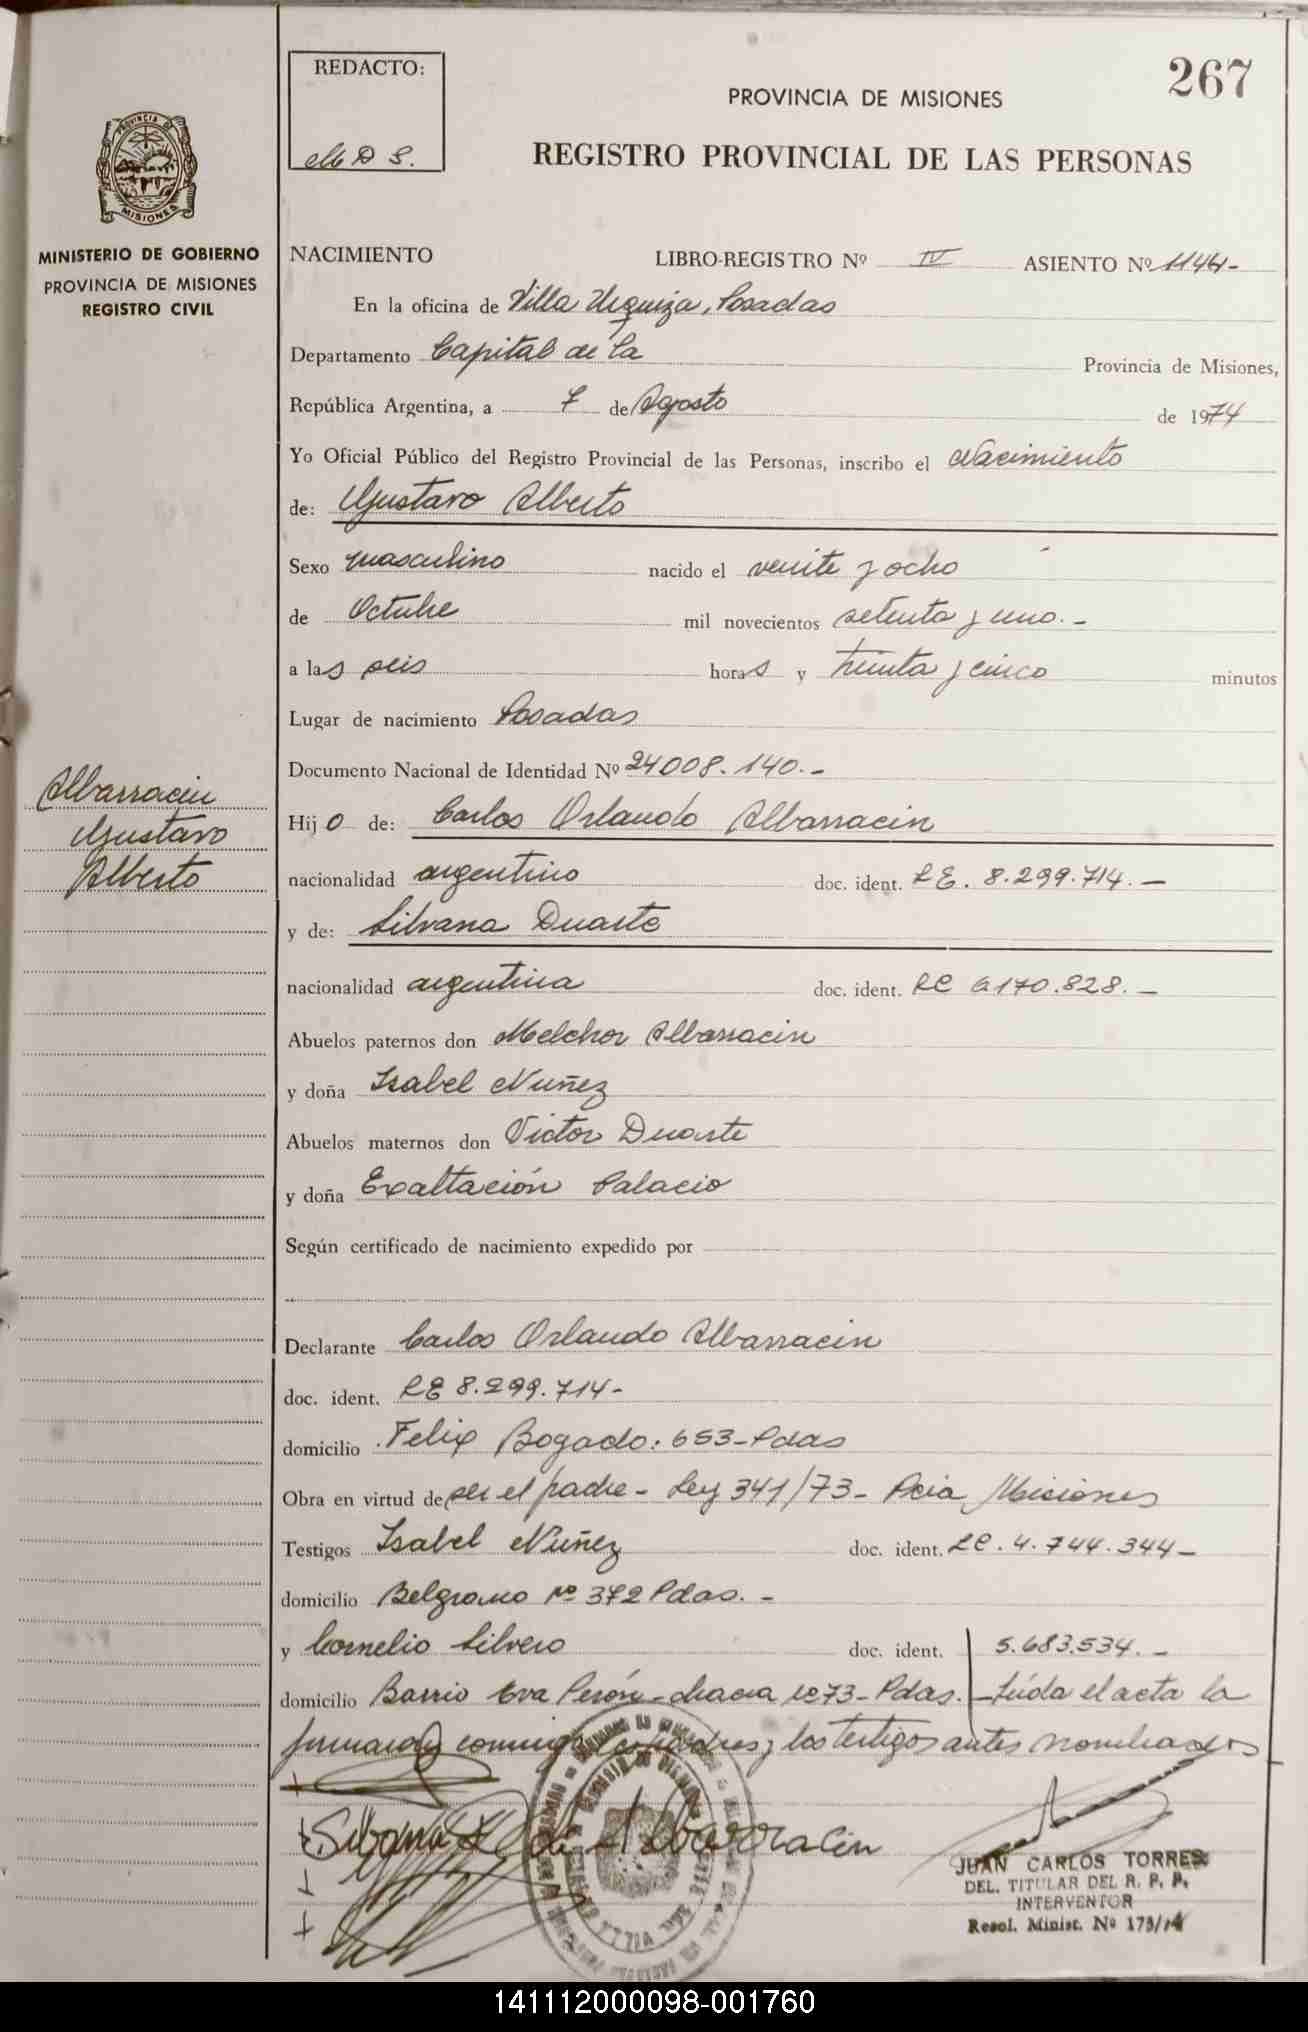 REDACTO:
MDS.
267
PROVINCIA DE MISIONES
REGISTRO PROVINCIAL DE LAS PERSONAS
PROVINCIA DE
MISIONES
MINISTERIO DE GOBIERNO
PROVINCIA DE MISIONES
REGISTRO CIVIL
NACIMIENTO LIBRO-REGISTRO Nº IV ASIENTO Nº 1144-
En la oficina de Villa Urquiza, Posadas
Departamento Capital de la Provincia de Misiones,
República Argentina, a 7 de Agosto de 1974
Yo Oficial Público del Registro Provincial de las Personas, inscribo el Nacimiento
de: Gustavo Alberto
Sexo masculino nacido el veinte y ocho
de Octubre mil novecientos setenta y uno.-
a las seis horas y treinta y cinco minutos
Lugar de nacimiento Posadas
Documento Nacional de Identidad Nº 24008.140.-
Albarracin
Gustavo
Alberto
Hijo de: Carlos Orlando Albarracin
nacionalidad argentino doc. ident. LE. 8.299.714.-
y de: Silvana Duarte
nacionalidad argentina doc. ident. LC 6.170.828.-
Abuelos paternos don Melchor Albarracin
y doña Isabel Nuñez
Abuelos maternos don Victor Duarte
y doña Exaltación Palacio
Según certificado de nacimiento expedido por
Declarante Carlos Orlando Albarracin
doc. ident. LE 8.299.714-
domicilio Felix Bogado: 653-Pdas
Obra en virtud de ser el padre- Ley 341/73- Pcia Misiones
Testigos Isabel Nuñez doc. ident. LC. 4.744.344-
domicilio Belgrano Nº 372 Pdas.-
y Cornelio Silvero doc. ident. 5.683.534.-
domicilio Barrio Eva Perón-chacra 1273-Pdas. -Leída el acta la
firmaron conmigo los padres y los testigos antes nombrados
Silvana D de Albarracin
JUAN CARLOS TORRES
DEL. TITULAR DEL R. P. P.
INTERVENTOR
Resol. Minist. Nº 173/74
141112000098-001760